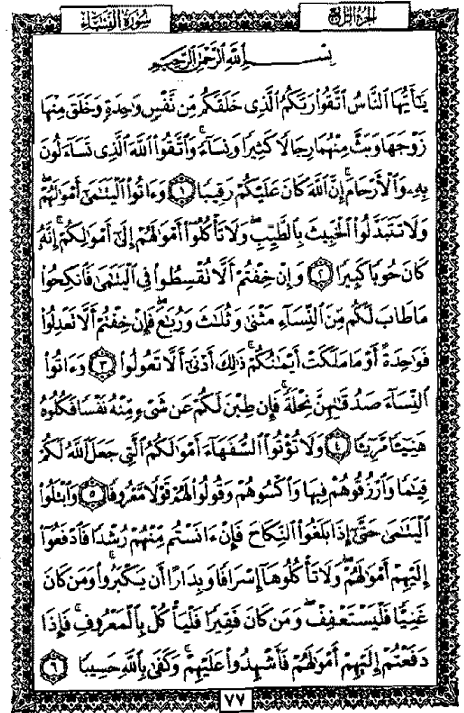 سورة النساء
الجزء الرابع
بسم الله الرحمن الرحيم
يَٰٓأَيُّهَا ٱلنَّاسُ ٱتَّقُوا۟ رَبَّكُمُ ٱلَّذِى خَلَقَكُم مِّن نَّفْسٍ وَٰحِدَةٍ وَخَلَقَ مِنْهَا
زَوْجَهَا وَبَثَّ مِنْهُمَا رِجَالًا كَثِيرًا وَنِسَآءً ۚ وَٱتَّقُوا۟ ٱللَّهَ ٱلَّذِى تَسَآءَلُونَ
بِهِۦ وَٱلْأَرْحَامَ ۚ إِنَّ ٱللَّهَ كَانَ عَلَيْكُمْ رَقِيبًا ١ وَءَاتُوا۟ ٱلْيَتَٰمَىٰٓ أَمْوَٰلَهُمْ ۖ
وَلَا تَتَبَدَّلُوا۟ ٱلْخَبِيثَ بِٱلطَّيِّبِ ۖ وَلَا تَأْكُلُوٓا۟ أَمْوَٰلَهُمْ إِلَىٰٓ أَمْوَٰلِكُمْ ۚ إِنَّهُۥ
كَانَ حُوبًا كَبِيرًا ٢ وَإِنْ خِفْتُمْ أَلَّا تُقْسِطُوا۟ فِى ٱلْيَتَٰمَىٰ فَٱنكِحُوا۟
مَا طَابَ لَكُم مِّنَ ٱلنِّسَآءِ مَثْنَىٰ وَثُلَٰثَ وَرُبَٰعَ ۖ فَإِنْ خِفْتُمْ أَلَّا تَعْدِلُوا۟
فَوَٰحِدَةً أَوْ مَا مَلَكَتْ أَيْمَٰنُكُمْ ۚ ذَٰلِكَ أَدْنَىٰٓ أَلَّا تَعُولُوا۟ ٣ وَءَاتُوا۟
ٱلنِّسَآءَ صَدُقَٰتِهِنَّ نِحْلَةً ۚ فَإِن طِبْنَ لَكُمْ عَن شَىْءٍ مِّنْهُ نَفْسًا فَكُلُوهُ
هَنِيٓـًٔا مَّرِيٓـًٔا ٤ وَلَا تُؤْتُوا۟ ٱلسُّفَهَآءَ أَمْوَٰلَكُمُ ٱلَّتِى جَعَلَ ٱللَّهُ لَكُمْ
قِيَٰمًا وَٱرْزُقُوهُمْ فِيهَا وَٱكْسُوهُمْ وَقُولُوا۟ لَهُمْ قَوْلًا مَّعْرُوفًا ٥ وَٱبْتَلُوا۟
ٱلْيَتَٰمَىٰ حَتَّىٰٓ إِذَا بَلَغُوا۟ ٱلنِّكَاحَ فَإِنْ ءَانَسْتُم مِّنْهُمْ رُشْدًا فَٱدْفَعُوٓا۟
إِلَيْهِمْ أَمْوَٰلَهُمْ ۖ وَلَا تَأْكُلُوهَآ إِسْرَافًا وَبِدَارًا أَن يَكْبَرُوا۟ ۚ وَمَن كَانَ
غَنِيًّا فَلْيَسْتَعْفِفْ ۖ وَمَن كَانَ فَقِيرًا فَلْيَأْكُلْ بِٱلْمَعْرُوفِ ۚ فَإِذَا
دَفَعْتُمْ إِلَيْهِمْ أَمْوَٰلَهُمْ فَأَشْهِدُوا۟ عَلَيْهِمْ ۚ وَكَفَىٰ بِٱللَّهِ حَسِيبًا ٦
٧٧